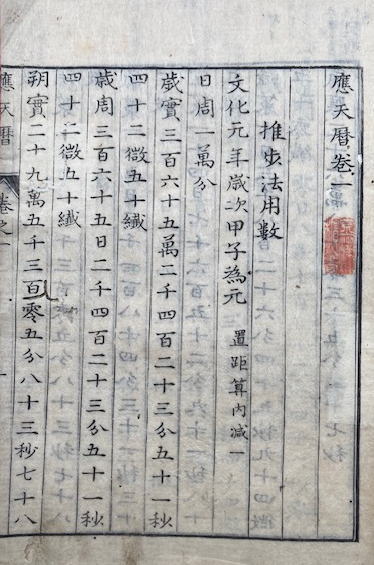 應天曆卷一
推步法用數
文化元年歲次甲子為元 置距算內減一
日周一萬分
歲實三百六十五萬二千四百二十三分五十一秒
四十二微五十纖
歲周三百六十五日二千四百二十三分五十一秒
四十二微五十纖
朔實二十九萬五千三百零五分八十三秒七十八
應天曆 卷之一